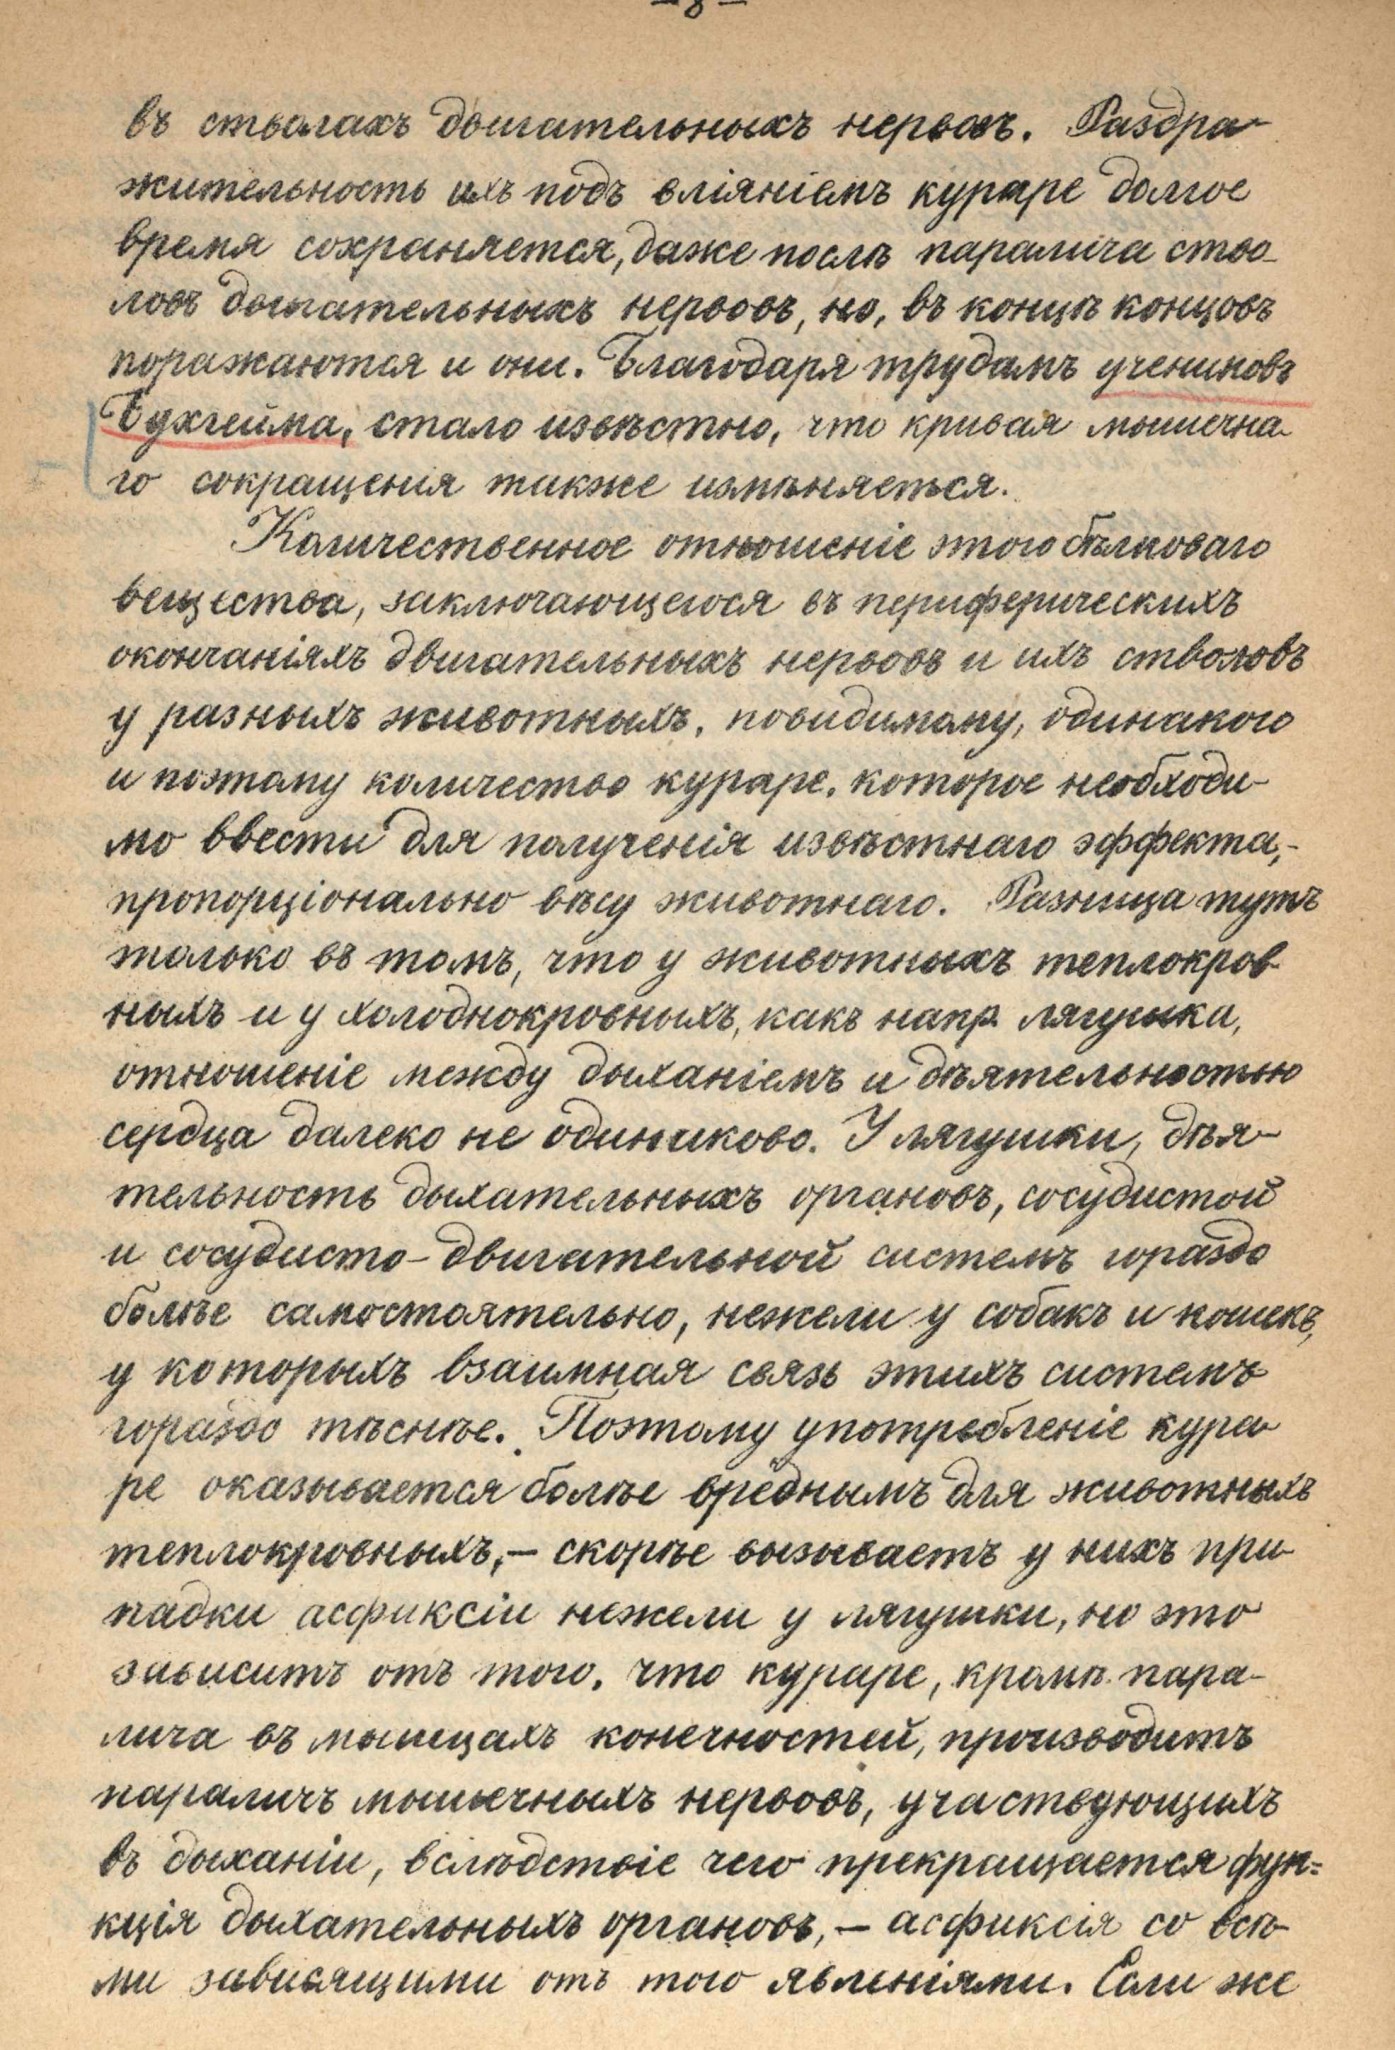 — 8 —
въ стволахъ двигательныхъ нервовъ. Раздра-
жительность ихъ подъ вліяніемъ кураре долгое
время сохраняется, даже послѣ паралича ство-
ловъ двигательныхъ нервовъ, но, въ концѣ концовъ
поражаются и они. Благодаря трудамъ учениковъ
Бухгейма, стало извѣстно, что кривая мышечна-
го сокращенія также измѣняеться.
Количественное отношеніе этого бѣлковаго
вещества, заключающегося въ периферическихъ
окончаніяхъ двигательныхъ нервовъ и ихъ стволовъ
у разныхъ животныхъ, повидимому, одинаково
и поэтому количество кураре, которое необходи-
мо ввести для полученія извѣстнаго эффекта,-
пропорціонально вѣсу животнаго. Разница тутъ
только въ томъ, что у животныхъ теплокров-
ныхъ и у холоднокровныхъ, какъ напр. лягушка,
отношеніе между дыханіемъ и дѣятельностью
сердца далеко не одинаково. У лягушки, дѣя-
тельность дыхательныхъ органовъ, сосудистой
и сосудисто-двигательной системъ гораздо
болѣе самостоятельно, нежели у собакъ и кошекъ,
у которыхъ взаимная связь этихъ системъ
гораздо тѣснѣе. Поэтому употребленіе кура-
ре оказывается болѣе вреднымъ для животныхъ
теплокровныхъ,— скорѣе вызываетъ у нихъ при-
падки асфиксіи нежели у лягушки, но это
зависитъ отъ того, что кураре, кромѣ пара-
лича въ мышцахъ конечностей, производитъ
параличъ мышечныхъ нервовъ, участвующихъ
въ дыханіи, вслѣдствіе чего прекращается фун=
кція дыхательныхъ органовъ,— асфиксія со всѣ-
ми зависящими отъ того явленіями. Если же